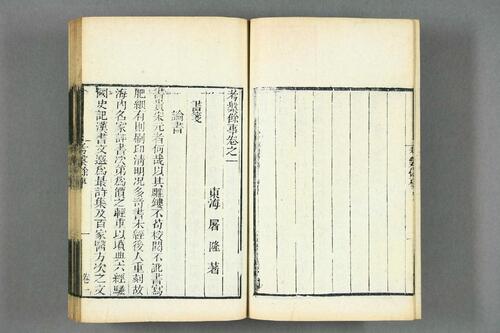 考槃餘事卷之一
東海 屠隆著
書箋
論書
書貴宋元者何哉以其雕鏤不苟校閱不訛書寫
肥細有則刷印清明况多奇書未經後人重刻故
海内名家評書次第為價之輕重以墳典六經騷
國史記漢書文選為最詩集及百家醫方次之文
考槃餘事
卷一